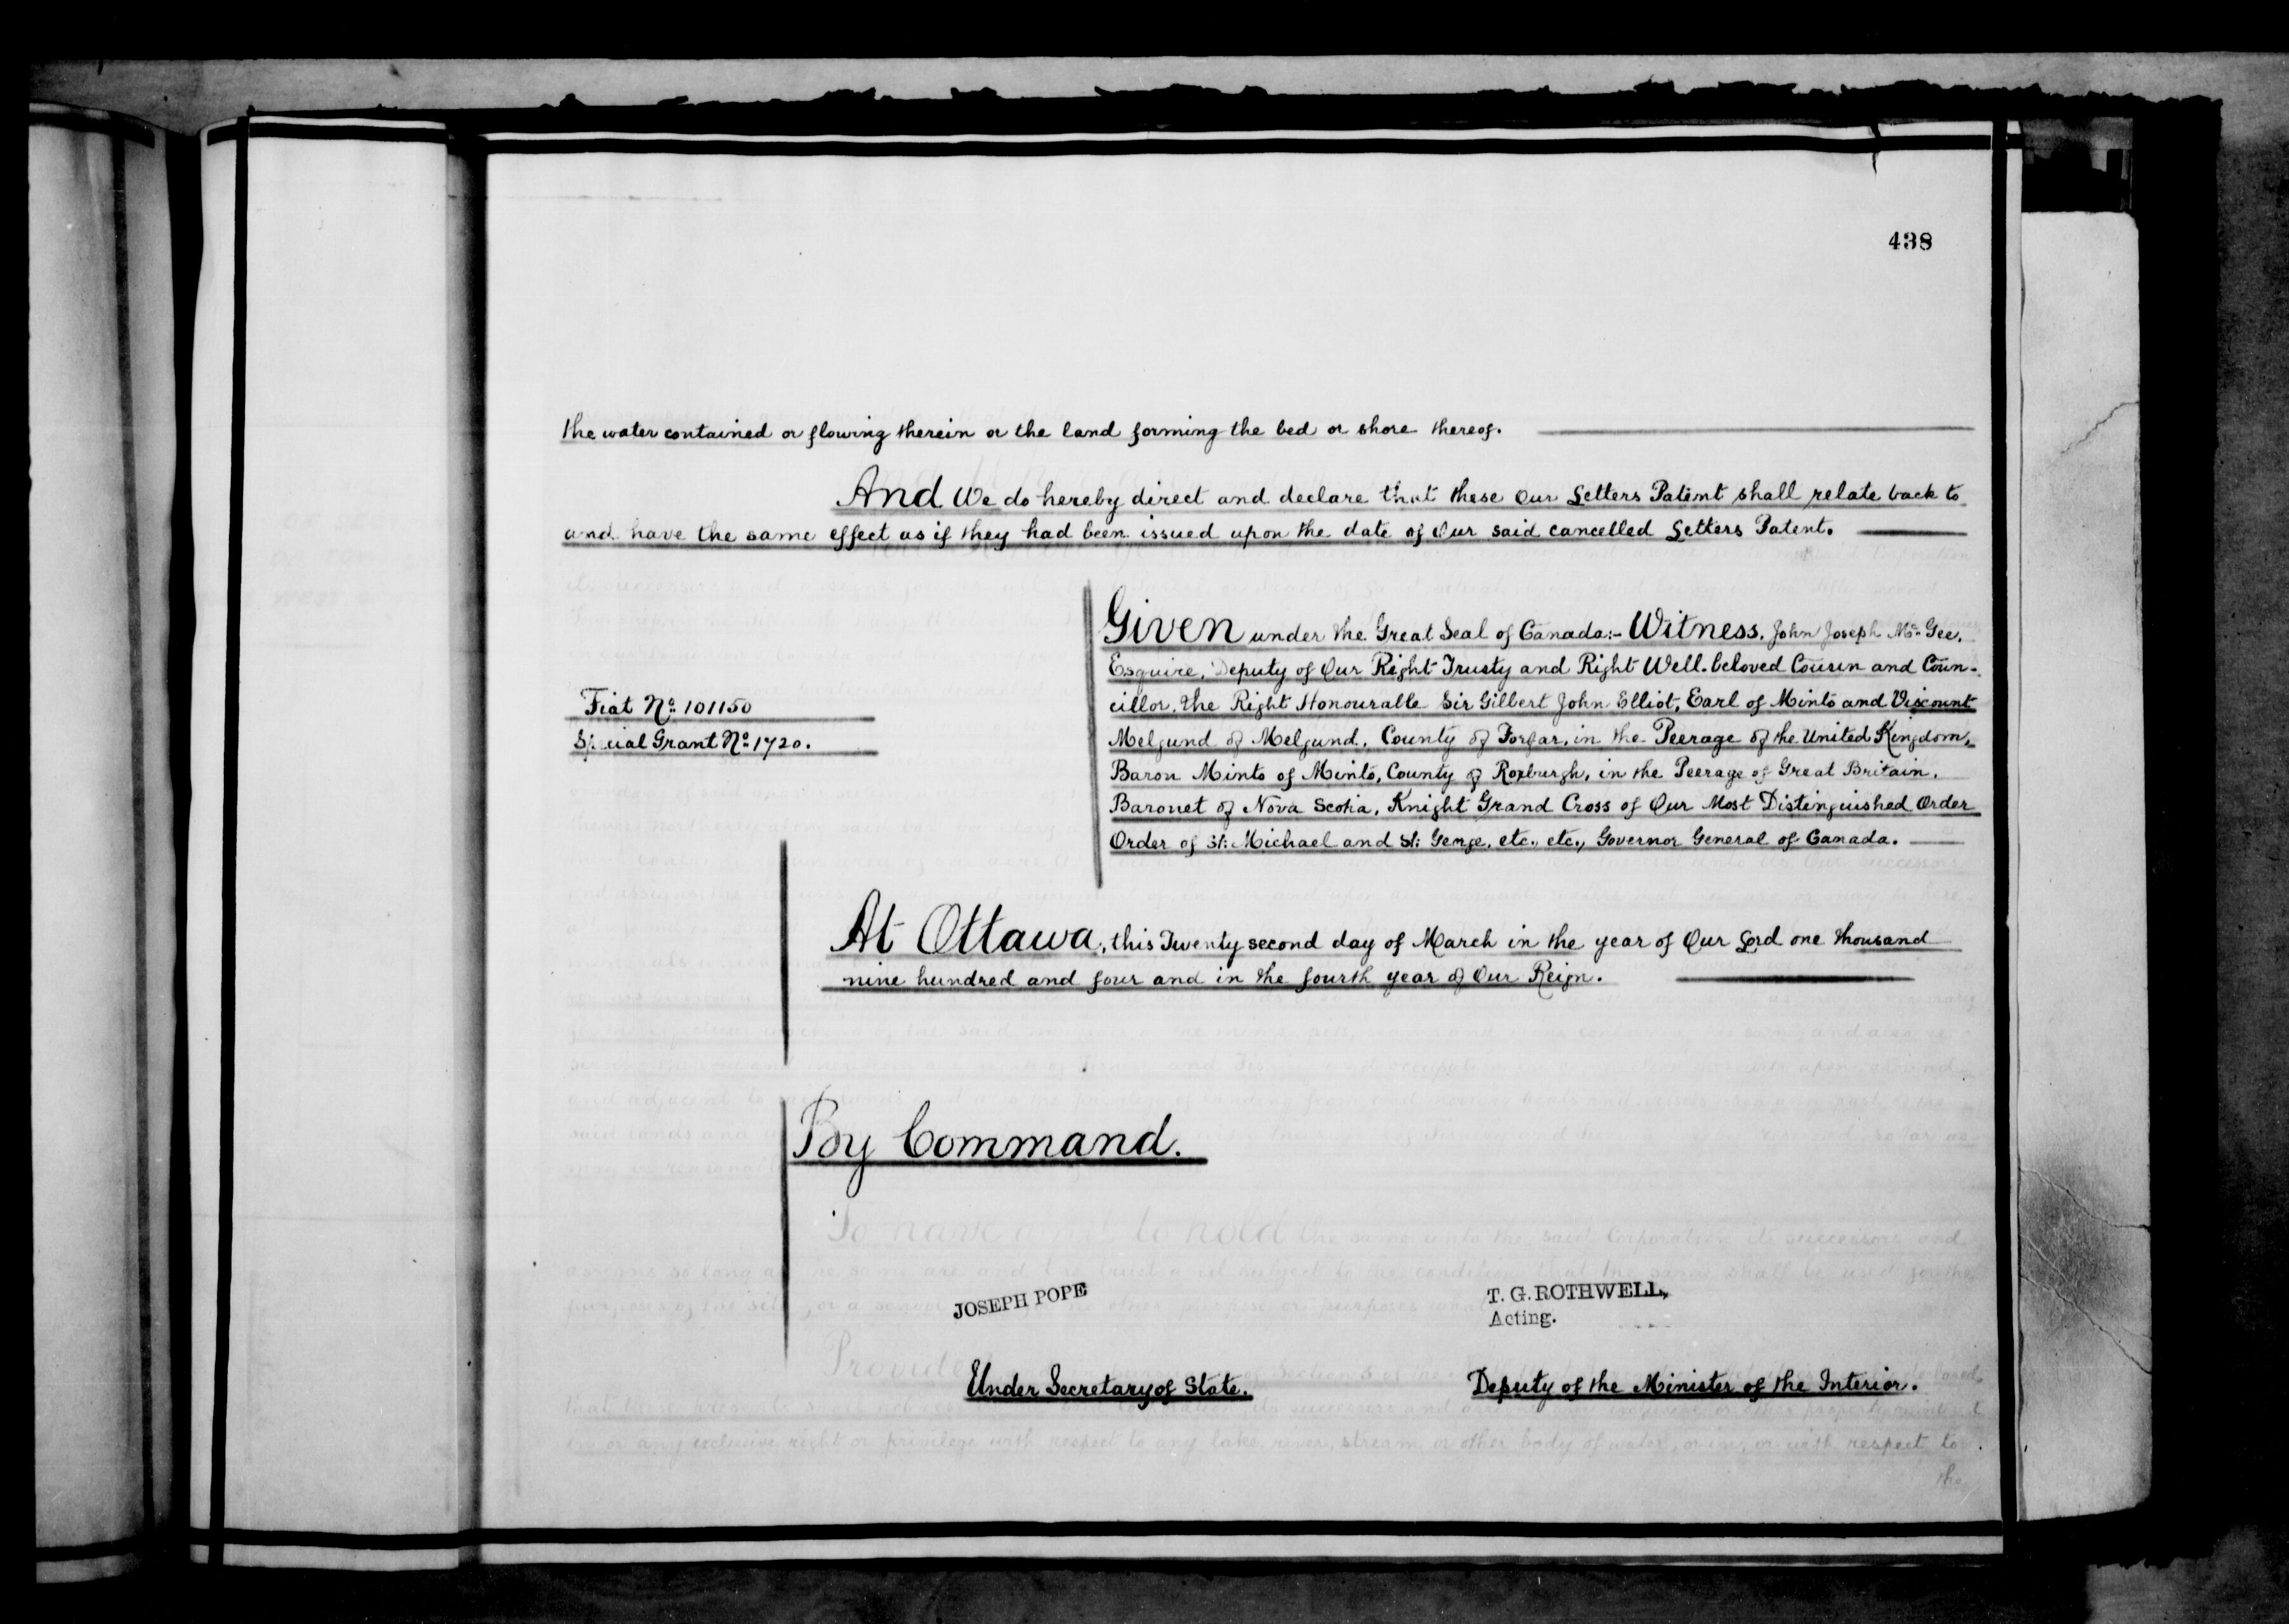 438
the water contained or flowing therein or the land forming the bed or shore thereof.
And We do hereby direct and declare that these Our Letters Patent shall relate back to
and have the same effect as if they had been issued upon the date of Our said cancelled Letters Patent.
Given under the Great Seal of Canada:- Witness, John Joseph McGee,
Esquire, Deputy of Our Right Trusty and Right Well-beloved Cousin and Coun-
cillor, the Right Honourable Sir Gilbert John Elliot, Earl of Minto and Viscount
Melgund of Melgund, County of Forfar, in the Peerage of the United Kingdom,
Baron Minto of Minto, County of Roxburgh, in the Peerage of Great Britain,
Baronet of Nova Scotia, Knight Grand Cross of Our Most Distinguished Order
Order of St. Michael and St. George, etc., etc., Governor General of Canada.
Fiat No. 101150
Special Grant No. 1720.
At Ottawa, this Twenty second day of March in the year of Our Lord one thousand
nine hundred and four and in the fourth year of Our Reign.
By Command.
JOSEPH POPE
Under Secretary of State.
T. G. ROTHWELL,
Acting.
Deputy of the Minister of the Interior.